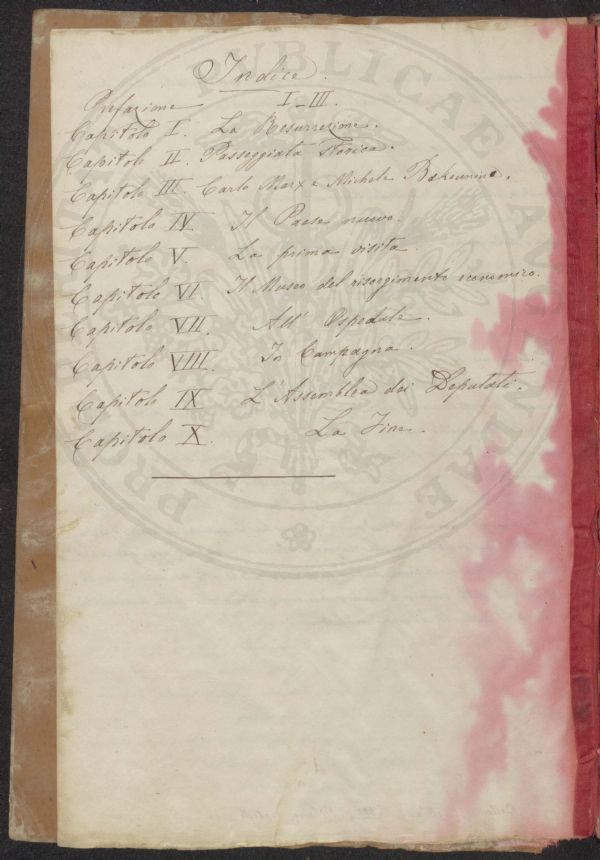 Indice.
Prefazione I-III.
Capitolo I. La Resurrezione.
Capitolo II. Passeggiata storica.
Capitolo III. Carlo Marx e Michele Bakounine.
Capitolo IV. Il Paese nuovo.
Capitolo V. La prima visita.
Capitolo VI. Il Museo del risorgimento economico.
Capitolo VII. All' Ospedale.
Capitolo VIII. In Campagna.
Capitolo IX L'Assemblea dei Deputati.
Capitolo X. La Fine.